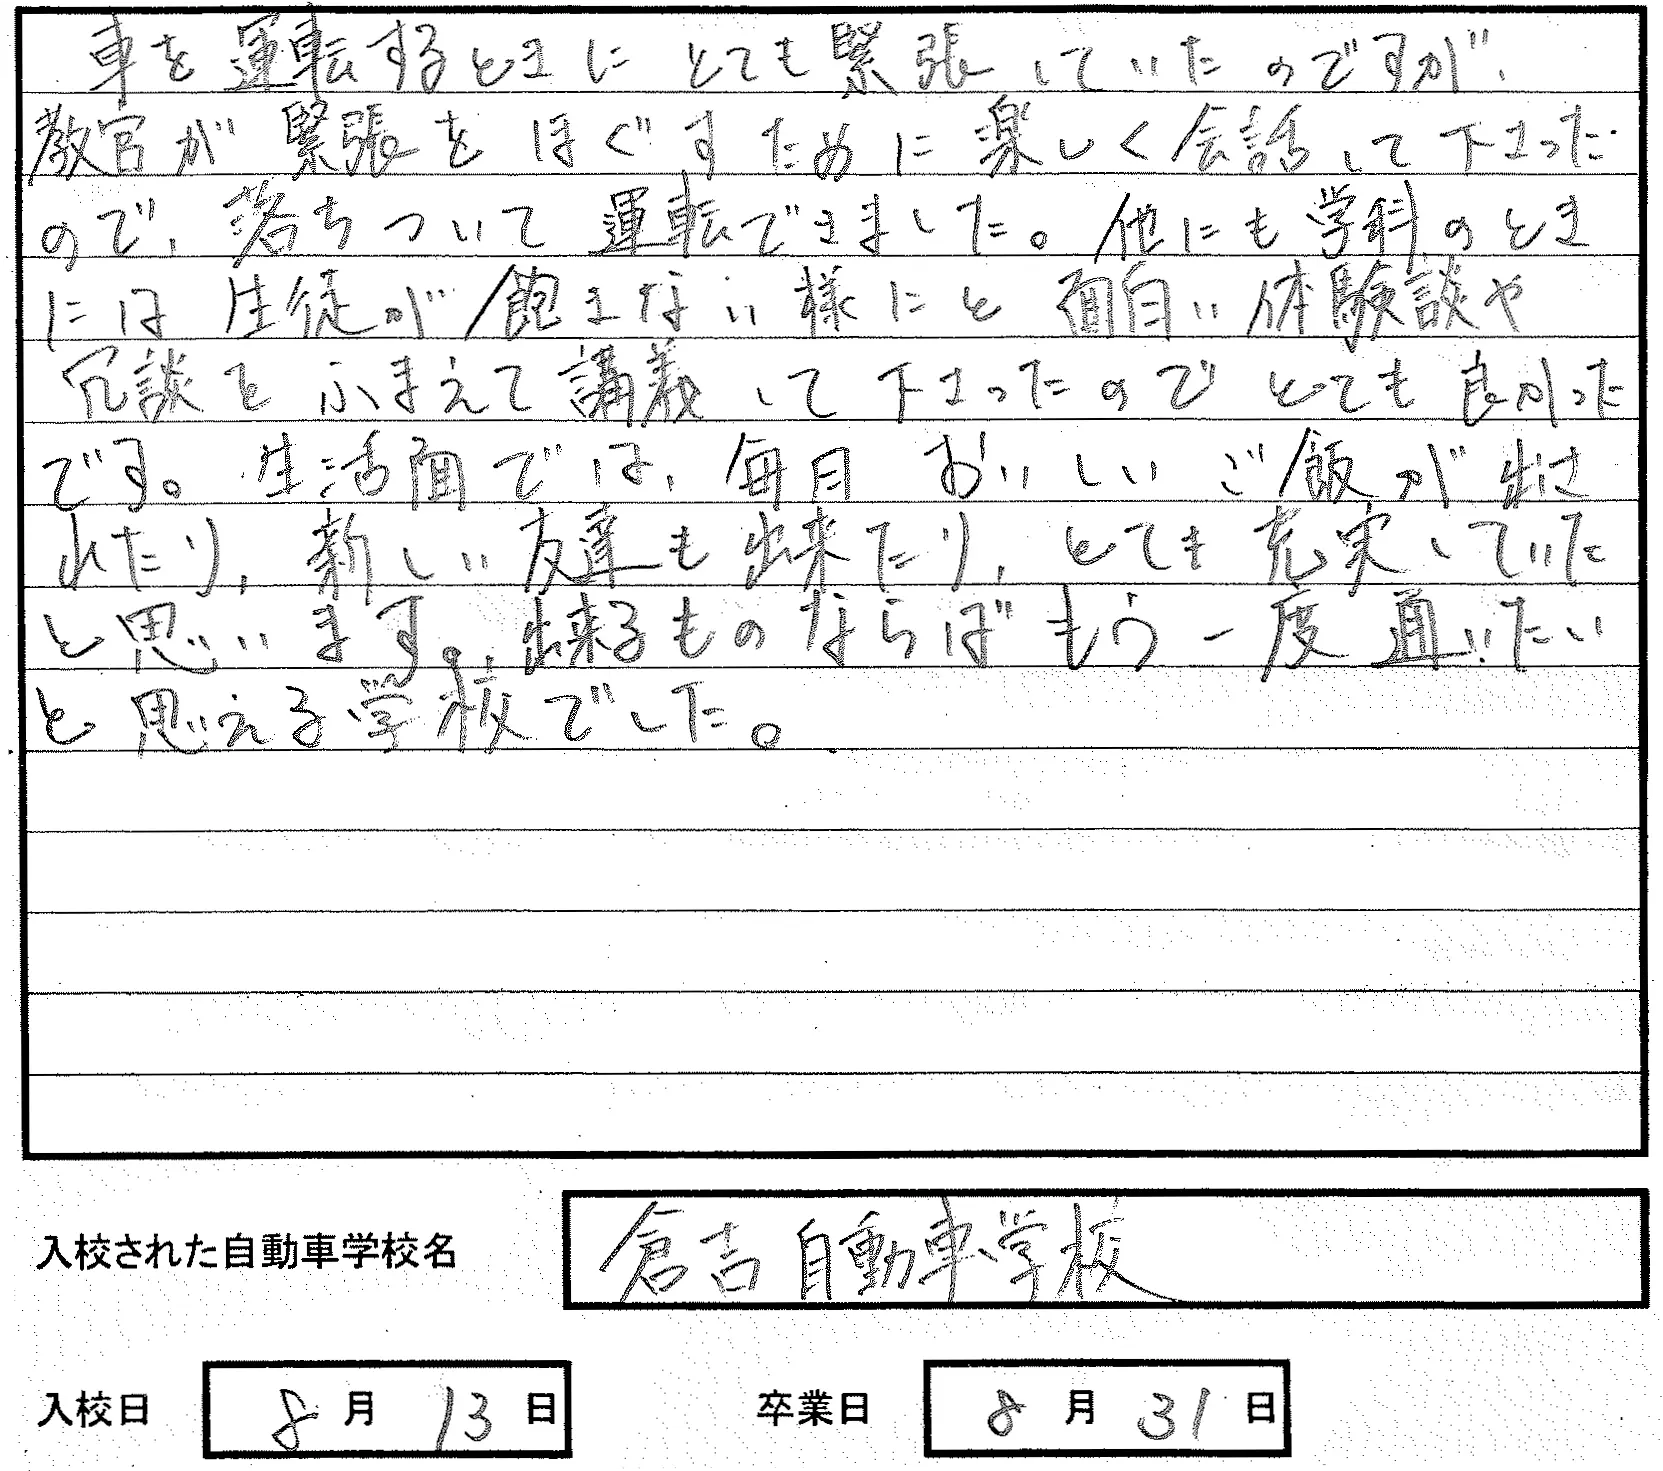 車を運転するときにとても緊張していたのですが、
教官が緊張をほぐすために楽しく会話して下さった
ので、落ちついて運転できました。他にも学科のとき
には生徒が飽きない様にと面白い体験談や
冗談をふまえて講義して下さったのでとても良かった
です。生活面では、毎日おいしいご飯が出さ
れたり、新しい友達も出来たり、とても充実していた
と思います。出来るものならばもう一度通いたい
と思える学校でした。
入校された自動車学校名 倉吉自動車学校
入校日 8月13日 卒業日 8月31日